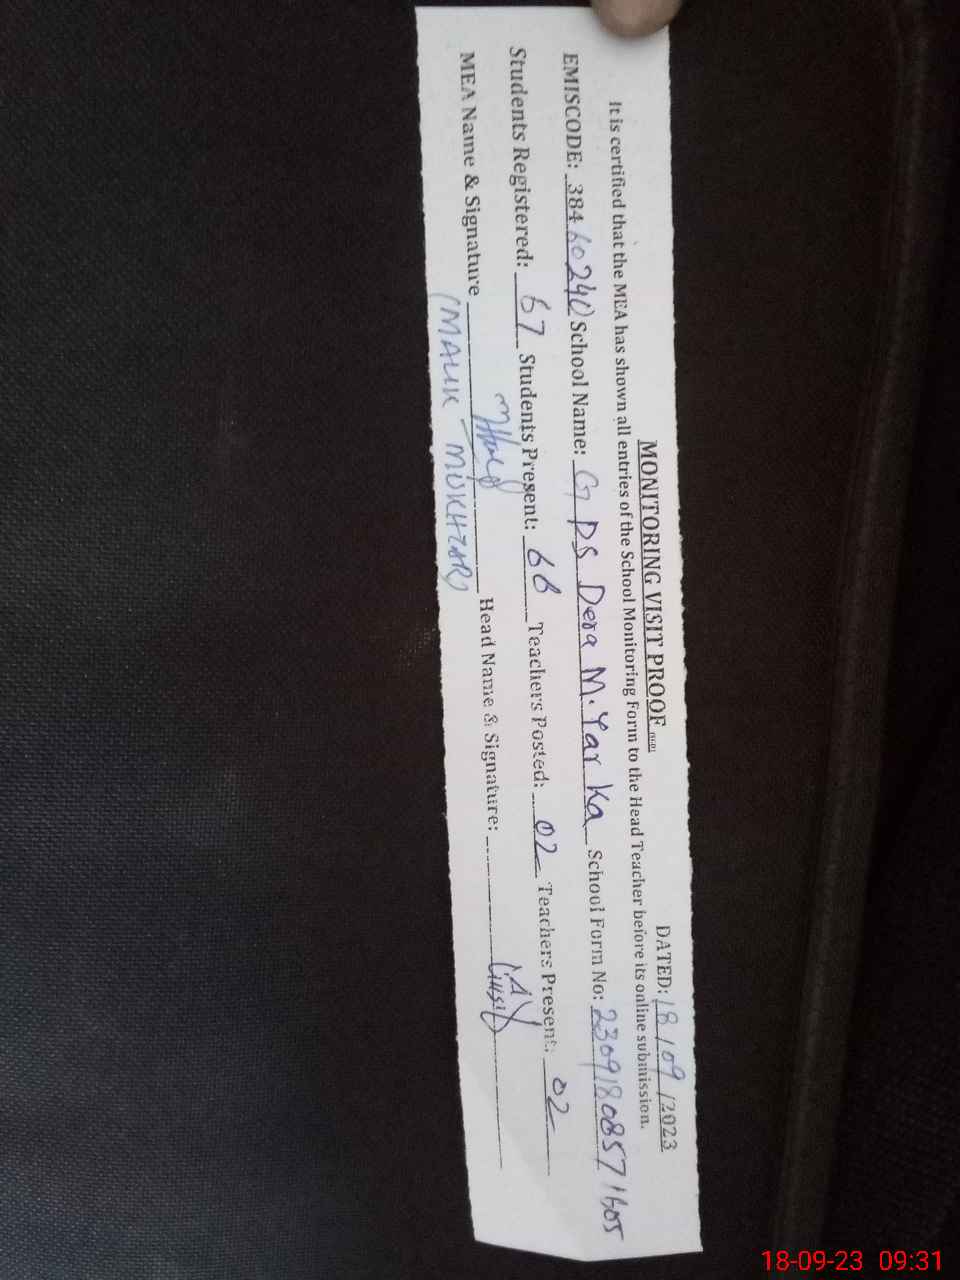 MONITORING VISIT PROOF DATED: 18/09/2023
It is certified that the MEA has shown all entries of the School Monitoring Form to the Head Teacher before its online submission.
EMISCODE: 38460240 School Name: GPS Dera M.Yar Ka School Form No: 230918085711605
Students Registered: 67 Students Present: 66 Teachers Posted: 02 Teachers Present: 02
MEA Name & Signature Head Name & Signature:
(MALIK MUKHTAR)
18-09-23 09:31